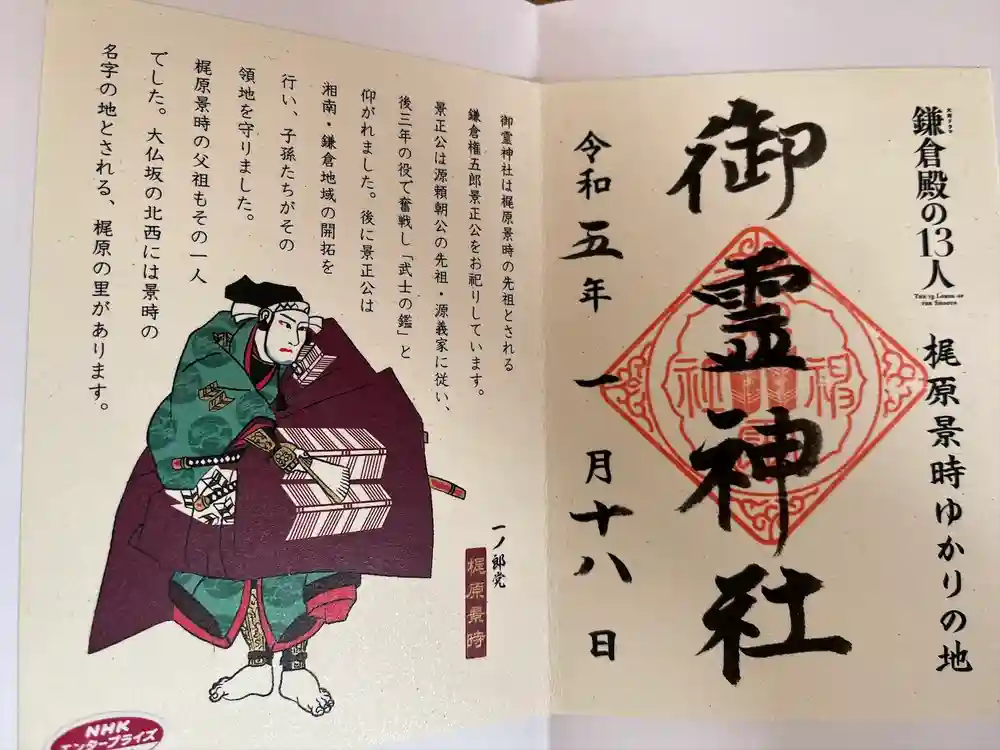 大河ドラマ
鎌倉殿の13人
THE 13 LORDS OF
THE SHOGUN
梶原景時ゆかりの地
御霊神社
令和五年 一月十八日
御霊神社は梶原景時の先祖とされる
鎌倉権五郎景正公をお祀りしています。
景正公は源頼朝公の先祖・源義家に従い、
後三年の役で奮戦し「武士の鑑」と
仰がれました。後に景正公は
湘南・鎌倉地域の開拓を
行い、子孫たちがその
領地を守りました。
梶原景時の父祖もその一人
でした。大仏坂の北西には景時の
名字の地とされる、梶原の里があります。
一ノ郎党
梶原景時
NHK
エンタープライズ